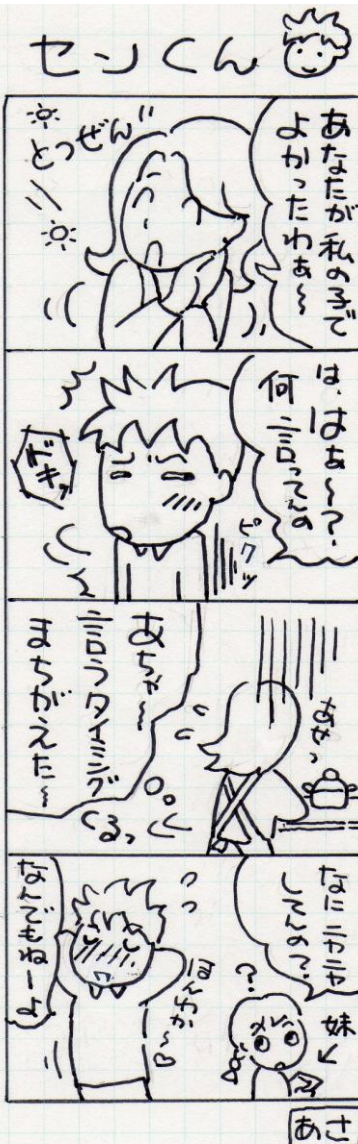 センくん
あなたが私の子で
よかったわぁ〜
とつぜん
は、はぁ〜?
何言ってんの
ドキッ
ピクッ
あせっ
あちゃ〜
言うタイミング
まちがえた〜
くるっ
なにニヤニヤ
してんの?
?
妹
ほんわか〜♡
なんでもねーよ
あさ